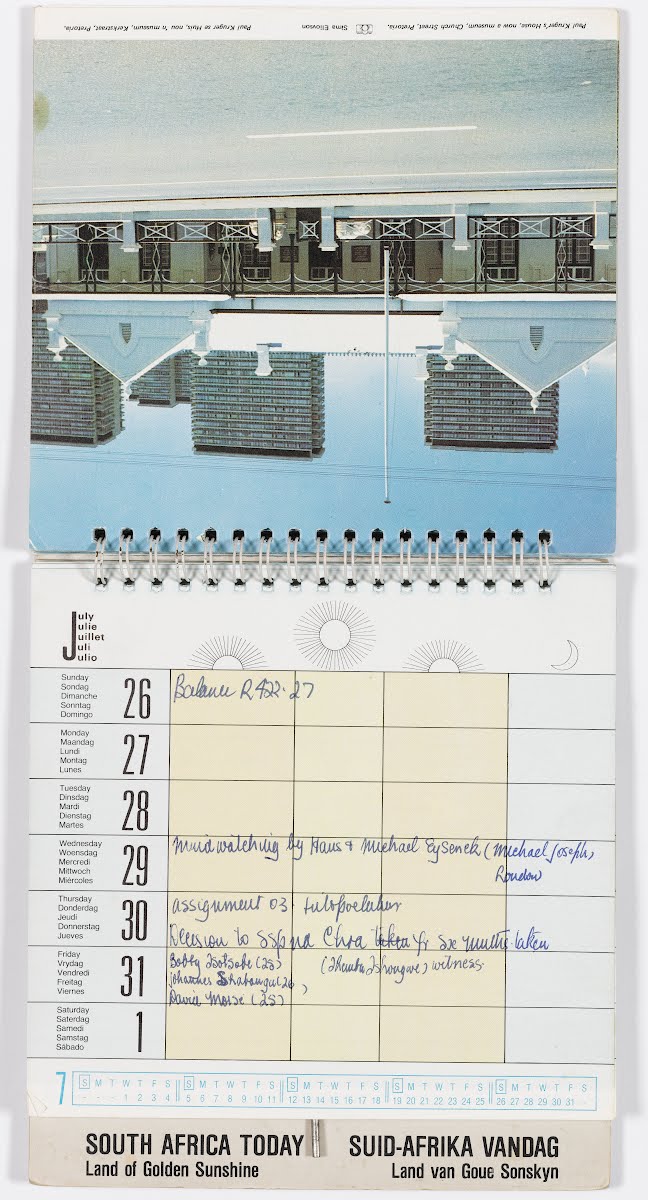 Paul Kruger's House, now a museum, Church Street, Pretoria. Sima Eliovson Paul Kruger se Huis, nou 'n museum, Kerkstraat, Pretoria.
July
Julie
Juillet
Juli
Julio
Sunday
Sondag
Dimanche
Sonntag
Domingo
26
Balance R422·27
Monday
Maandag
Lundi
Montag
Lunes
27
Tuesday
Dinsdag
Mardi
Dienstag
Martes
28
Wednesday
Woensdag
Mercredi
Mittwoch
Miércoles
29
Mindwatching by Hans & Michael Eysenck (Michael Joseph,
London)
Thursday
Donderdag
Jeudi
Donnerstag
Jueves
30
assignment 03
Decision to for six months taken
Friday
Vrydag
Vendredi
Freitag
Viernes
31
Bobby Tsotsobe (25) witness
Johannes Shabangu (26)
David Moise (25)
Saturday
Saterdag
Samedi
Samstag
Sábado
1
7 S M T W T F S S M T W T F S S M T W T F S S M T W T F S S M T W T F S
- - - 1 2 3 4 5 6 7 8 9 10 11 12 13 14 15 16 17 18 19 20 21 22 23 24 25 26 27 28 29 30 31 -
SOUTH AFRICA TODAY SUID-AFRIKA VANDAG
Land of Golden Sunshine Land van Goue Sonskyn